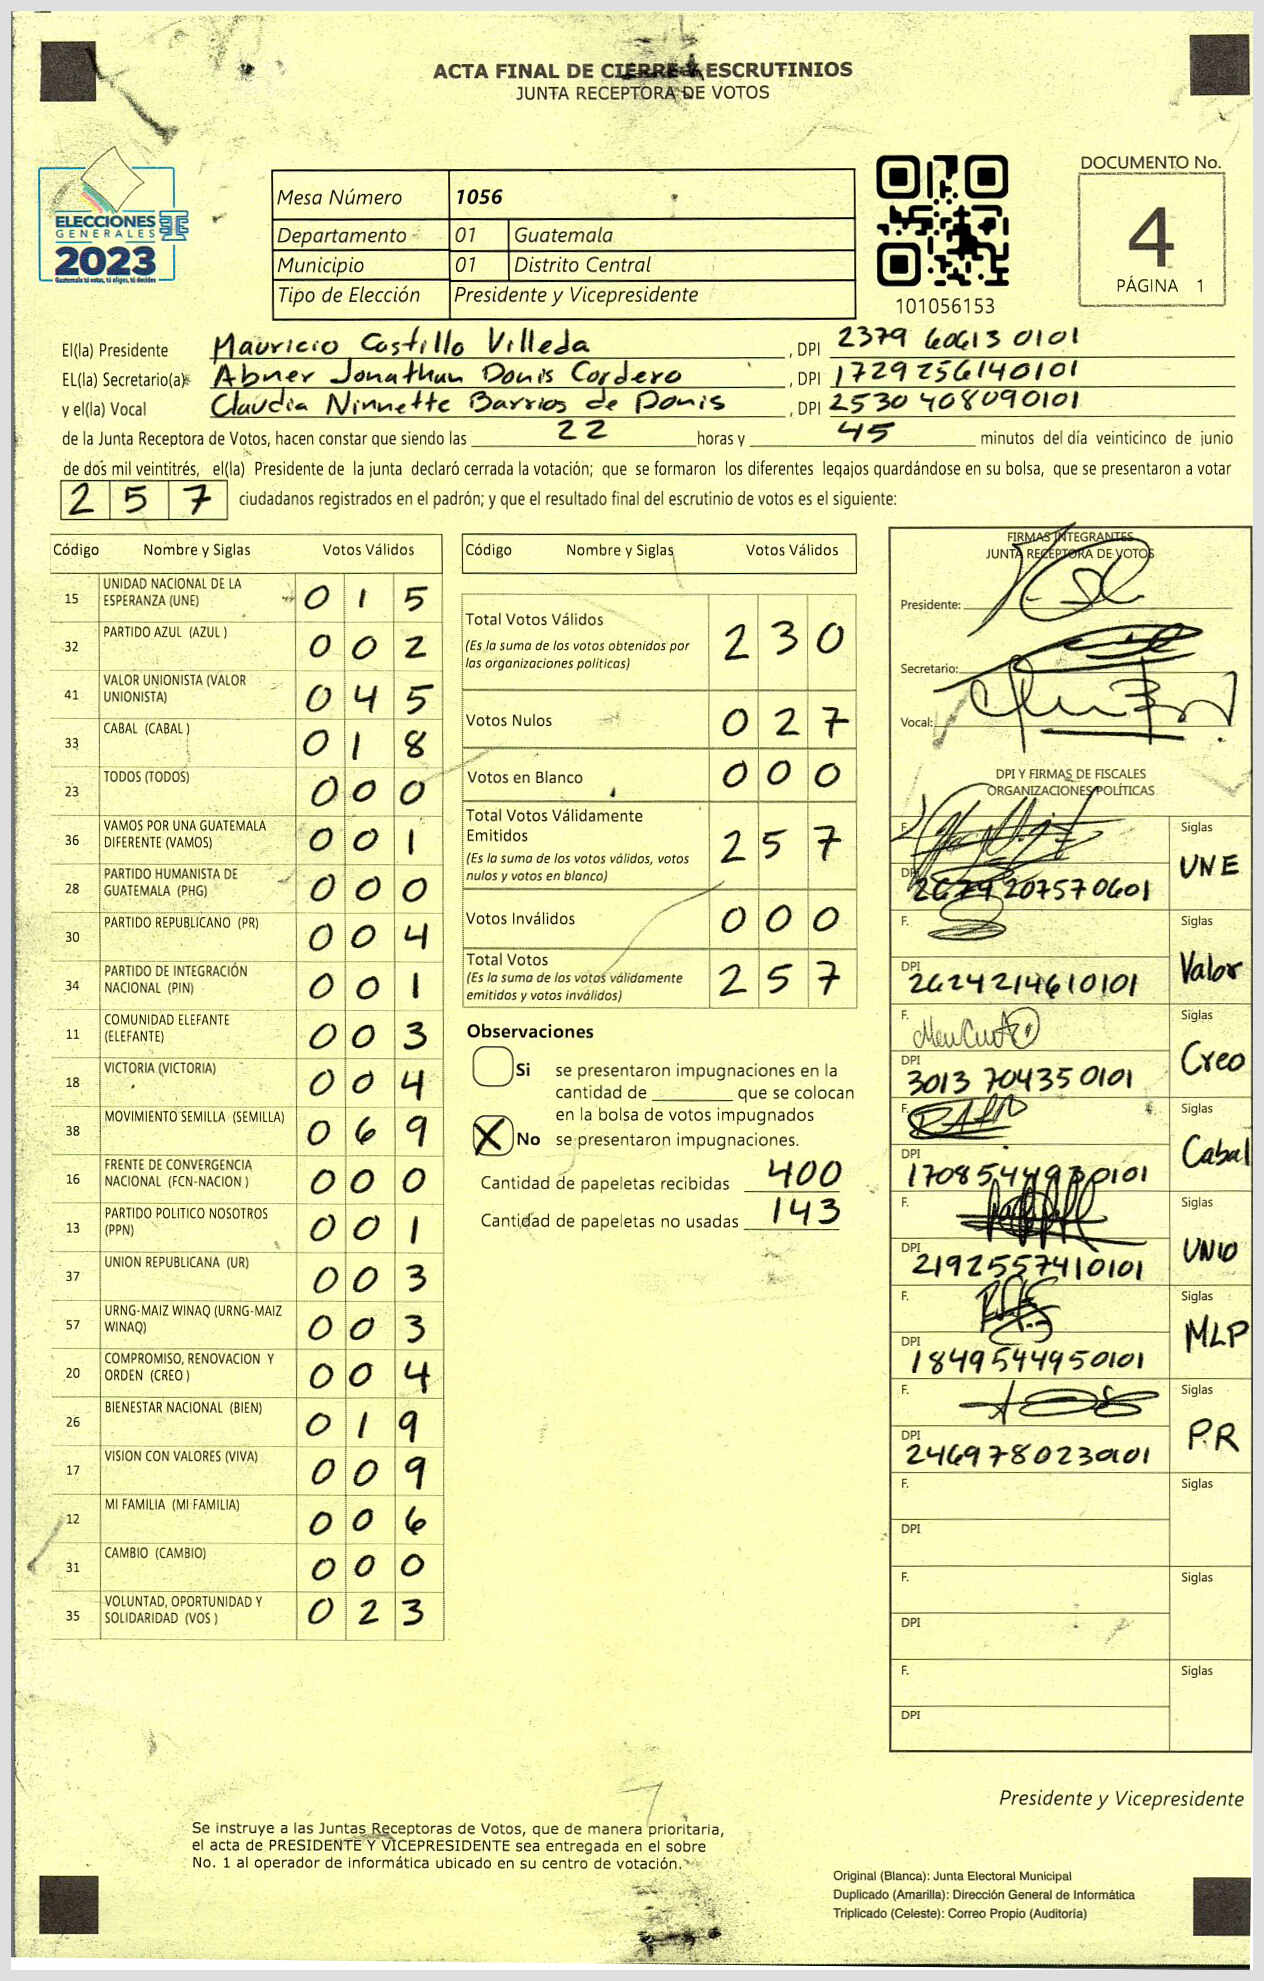 ACTA FINAL DE CIERRE Y ESCRUTINIOS
JUNTA RECEPTORA DE VOTOS
ELECCIONES
GENERALES
2023
Guatemala tú votas, tú eliges, tú decides
Mesa Número 1056
Departamento 01 Guatemala
Municipio 01 Distrito Central
Tipo de Elección Presidente y Vicepresidente
101056153
DOCUMENTO No.
4
PÁGINA 1
El(la) Presidente Mauricio Castillo Villeda , DPI 2379 60613 0101
EL(la) Secretario(a) Abner Jonathan Donis Cordero , DPI 1729256140101
y el(la) Vocal Claudia Ninnette Barrios de Donis , DPI 2530 408090101
de la Junta Receptora de Votos, hacen constar que siendo las 22 horas y 45 minutos del día veinticinco de junio
de dos mil veintitrés, el(la) Presidente de la junta declaró cerrada la votación; que se formaron los diferentes legajos guardándose en su bolsa, que se presentaron a votar
257 ciudadanos registrados en el padrón; y que el resultado final del escrutinio de votos es el siguiente:
Código Nombre y Siglas Votos Válidos
15 UNIDAD NACIONAL DE LA ESPERANZA (UNE) 015
32 PARTIDO AZUL (AZUL ) 002
41 VALOR UNIONISTA (VALOR UNIONISTA) 045
33 CABAL (CABAL ) 018
23 TODOS (TODOS) 000
36 VAMOS POR UNA GUATEMALA DIFERENTE (VAMOS) 001
28 PARTIDO HUMANISTA DE GUATEMALA (PHG) 000
30 PARTIDO REPUBLICANO (PR) 004
34 PARTIDO DE INTEGRACIÓN NACIONAL (PIN) 001
11 COMUNIDAD ELEFANTE (ELEFANTE) 003
18 VICTORIA (VICTORIA) 004
38 MOVIMIENTO SEMILLA (SEMILLA) 069
16 FRENTE DE CONVERGENCIA NACIONAL (FCN-NACION ) 000
13 PARTIDO POLITICO NOSOTROS (PPN) 001
37 UNION REPUBLICANA (UR) 003
57 URNG-MAIZ WINAQ (URNG-MAIZ WINAQ) 003
20 COMPROMISO, RENOVACION Y ORDEN (CREO ) 004
26 BIENESTAR NACIONAL (BIEN) 019
17 VISION CON VALORES (VIVA) 009
12 MI FAMILIA (MI FAMILIA) 006
31 CAMBIO (CAMBIO) 000
35 VOLUNTAD, OPORTUNIDAD Y SOLIDARIDAD (VOS ) 023
Código Nombre y Siglas Votos Válidos
Total Votos Válidos 230
(Es la suma de los votos obtenidos por
las organizaciones políticas)
Votos Nulos 027
Votos en Blanco 000
Total Votos Válidamente
Emitidos 257
(Es la suma de los votos válidos, votos
nulos y votos en blanco)
Votos Inválidos 000
Total Votos 257
(Es la suma de los votos válidamente
emitidos y votos inválidos)
Observaciones
Si se presentaron impugnaciones en la
cantidad de ________ que se colocan
en la bolsa de votos impugnados
X No se presentaron impugnaciones.
Cantidad de papeletas recibidas 400
Cantidad de papeletas no usadas 143
FIRMAS INTEGRANTES
JUNTA RECEPTORA DE VOTOS
Presidente:
Secretario:
Vocal:
DPI Y FIRMAS DE FISCALES
ORGANIZACIONES POLÍTICAS
F. Siglas
DPI 2679 207570601 UNE
F. Siglas
DPI 2624214610101 Valor
F. Siglas
DPI 3013 704350101 Creo
F. Siglas
DPI 1708544930101 Cabal
F. Siglas
DPI 2192557410101 UNIO
F. Siglas
DPI 1849544950101 MLP
F. Siglas
DPI 2469780230101 P.R
F. Siglas
DPI
F. Siglas
DPI
F. Siglas
DPI
Presidente y Vicepresidente
Se instruye a las Juntas Receptoras de Votos, que de manera prioritaria,
el acta de PRESIDENTE Y VICEPRESIDENTE sea entregada en el sobre
No. 1 al operador de informática ubicado en su centro de votación.
Original (Blanca): Junta Electoral Municipal
Duplicado (Amarilla): Dirección General de Informática
Triplicado (Celeste): Correo Propio (Auditoría)